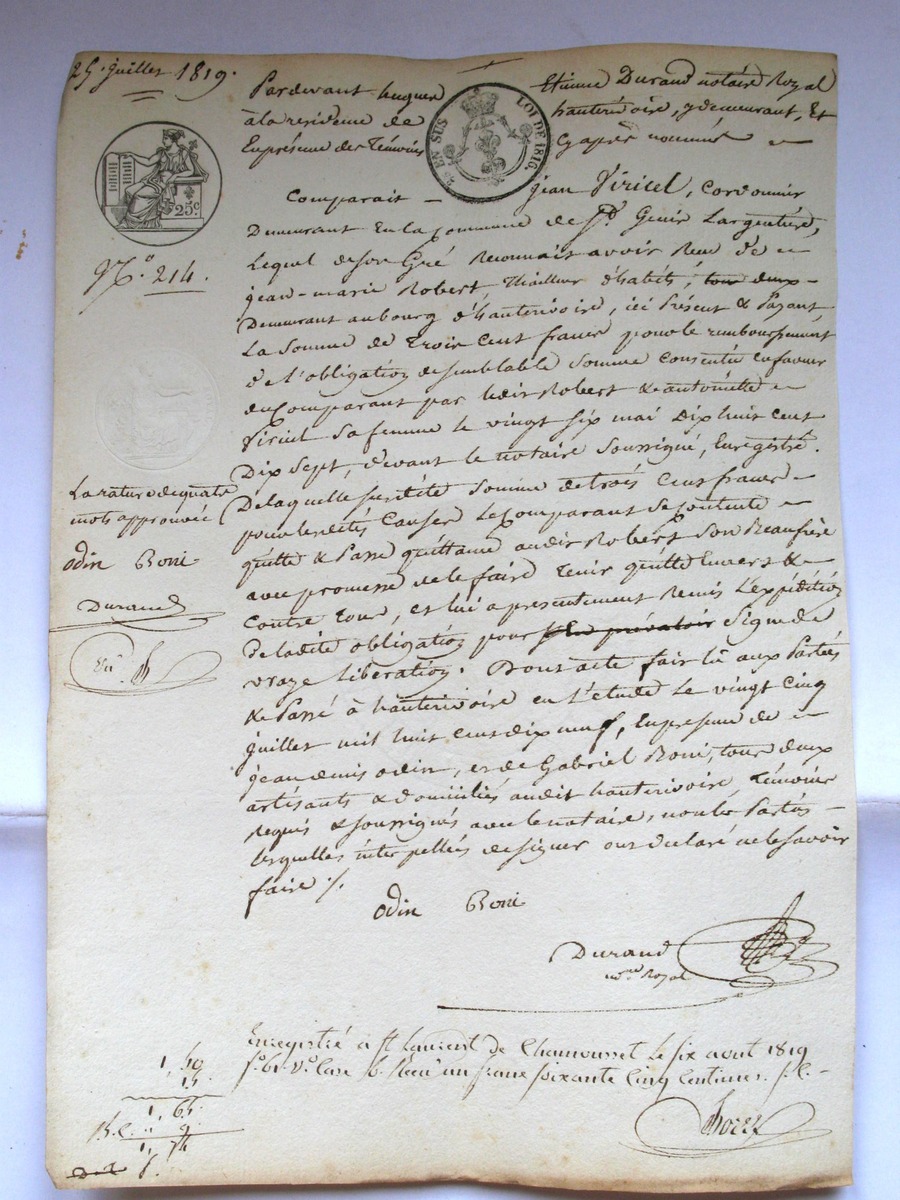 25. juillet 1819.
Pardevant hugue Etienne Durand notaire Royal
à la residence de hauterivoire, y demeurant, Et
En présence des Témoins Cyaprès nommés
EN SUS LOI DE 1816.
25c
N.o 214.
Comparait jean Viricel, cordonnier
Demeurant En la Commune de St Genis Largentière,
Lequel de son Gré Reconnais avoir Reçu de
jean-marie Robert, Thailleur d'habits, tous deux
Demeurant au bourg d'hauterivoire, ici Présent & Payant
La Somme de Trois Cent francs pour le remboursement
de l'obligation de semblable Somme consentie en faveur
du Comparant par ledit Robert & antoinette
Viricel sa femme le vingt six mai Dix huit cent
Dix Sept, devant le notaire Soussigné, Enregistré.
De laquelle susdite Somme de trois Cent francs
pour lesdites Causes le comparant se contente
quitte & Passe quittance audit Robert Son Beaufrère
avec promesse de le faire Tenir quitte Envers &
contre Tous, et lui a presentement Remis L'expédition
de ladite obligation pour prévaloir Signe de
vraye libération. Dont acte fait lû aux Parties
& Passé à hauterivoire en L'etude Le vingt Cinq
juillet mil huit Cent dix neuf, En présence de
jean denis odin, et de Gabriel Boni, tous deux
artisants & domiciliés audit hauterivoire Témoins
Requis & soussignés avec le notaire, non les Parties
lesquelles interpellées de signer ont declaré ne le savoir
faire ./.
La rature de quatre
mots approuvée
odin Boni
Durand
odin Boni
Durand
nre Royal
Enregistré à St Laurent de Chamousset le six aout 1819
fo. 61. Vo. Case 6. Reçu un franc soixante Cinq Centimes.
1, 50
15.
1, 65.